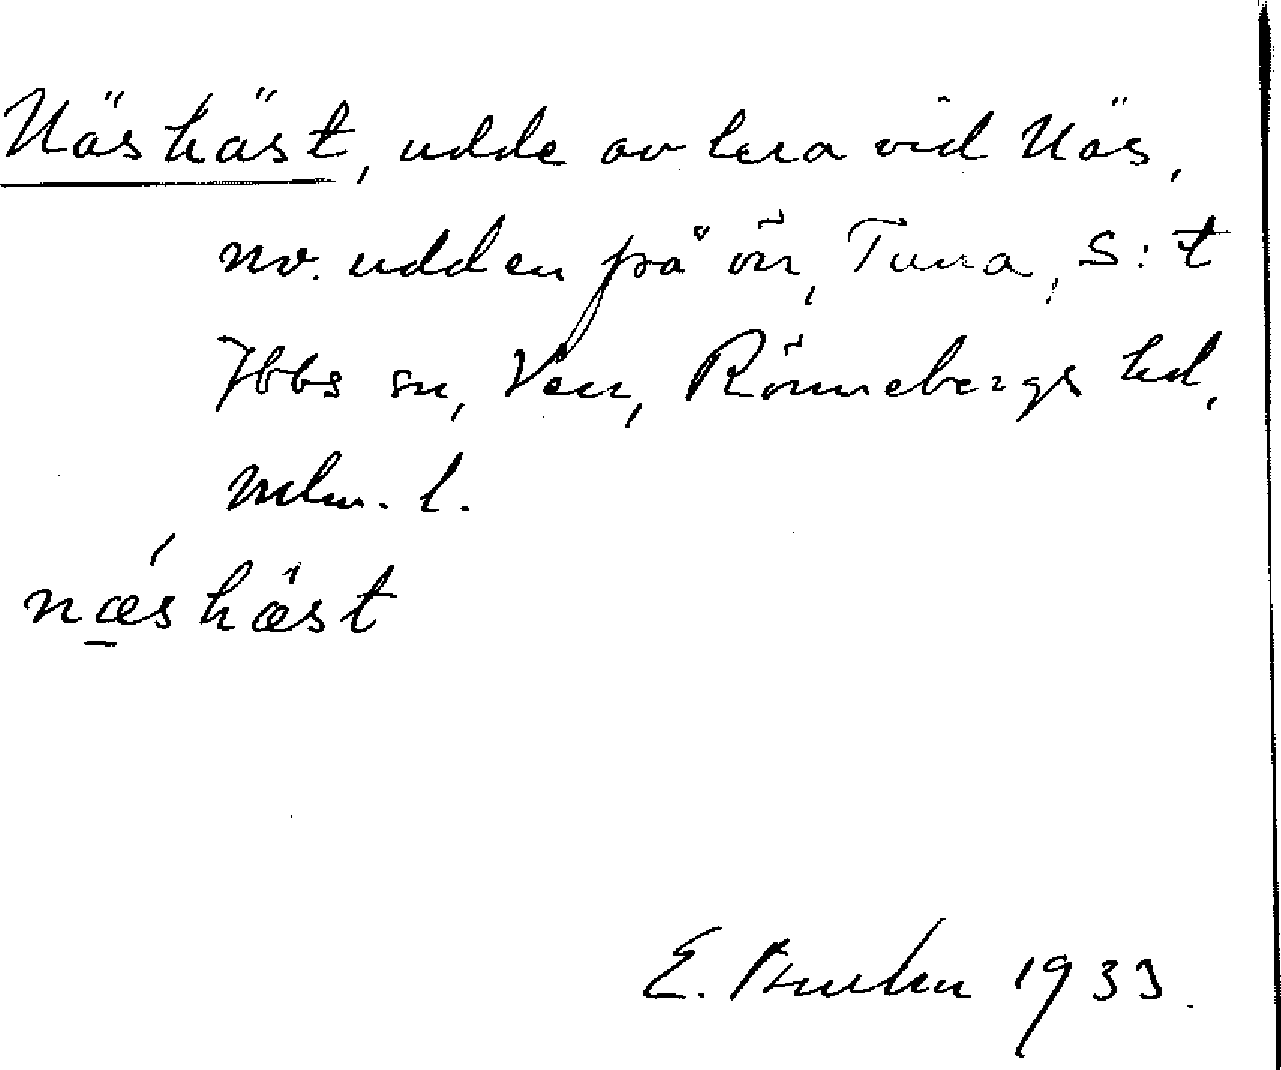 Näshäst, udde av lera vid Näs,
nv. udden på ön, Tuna, S:t
Ibbs sn, Ven, Rönnebergs hd,
mlm. l.
næshæst
E. 1933.